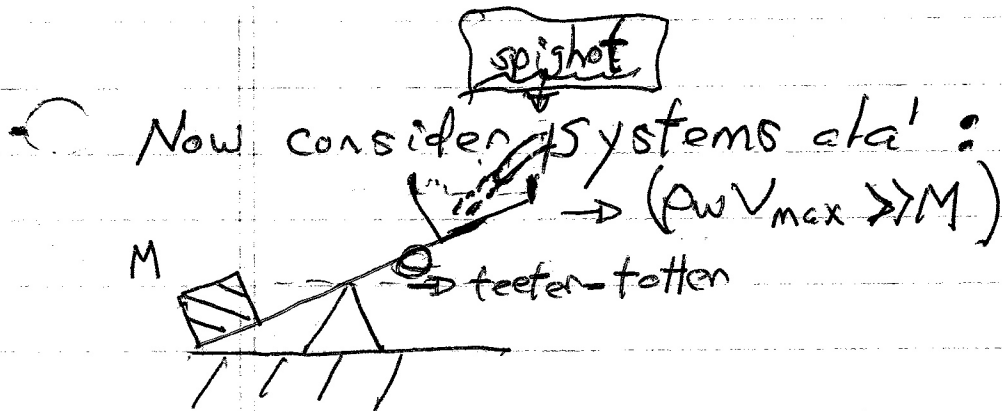 spighot
Now consider systems ala' :
→ (ρw Vmax >> M)
M
→ teeter-totter